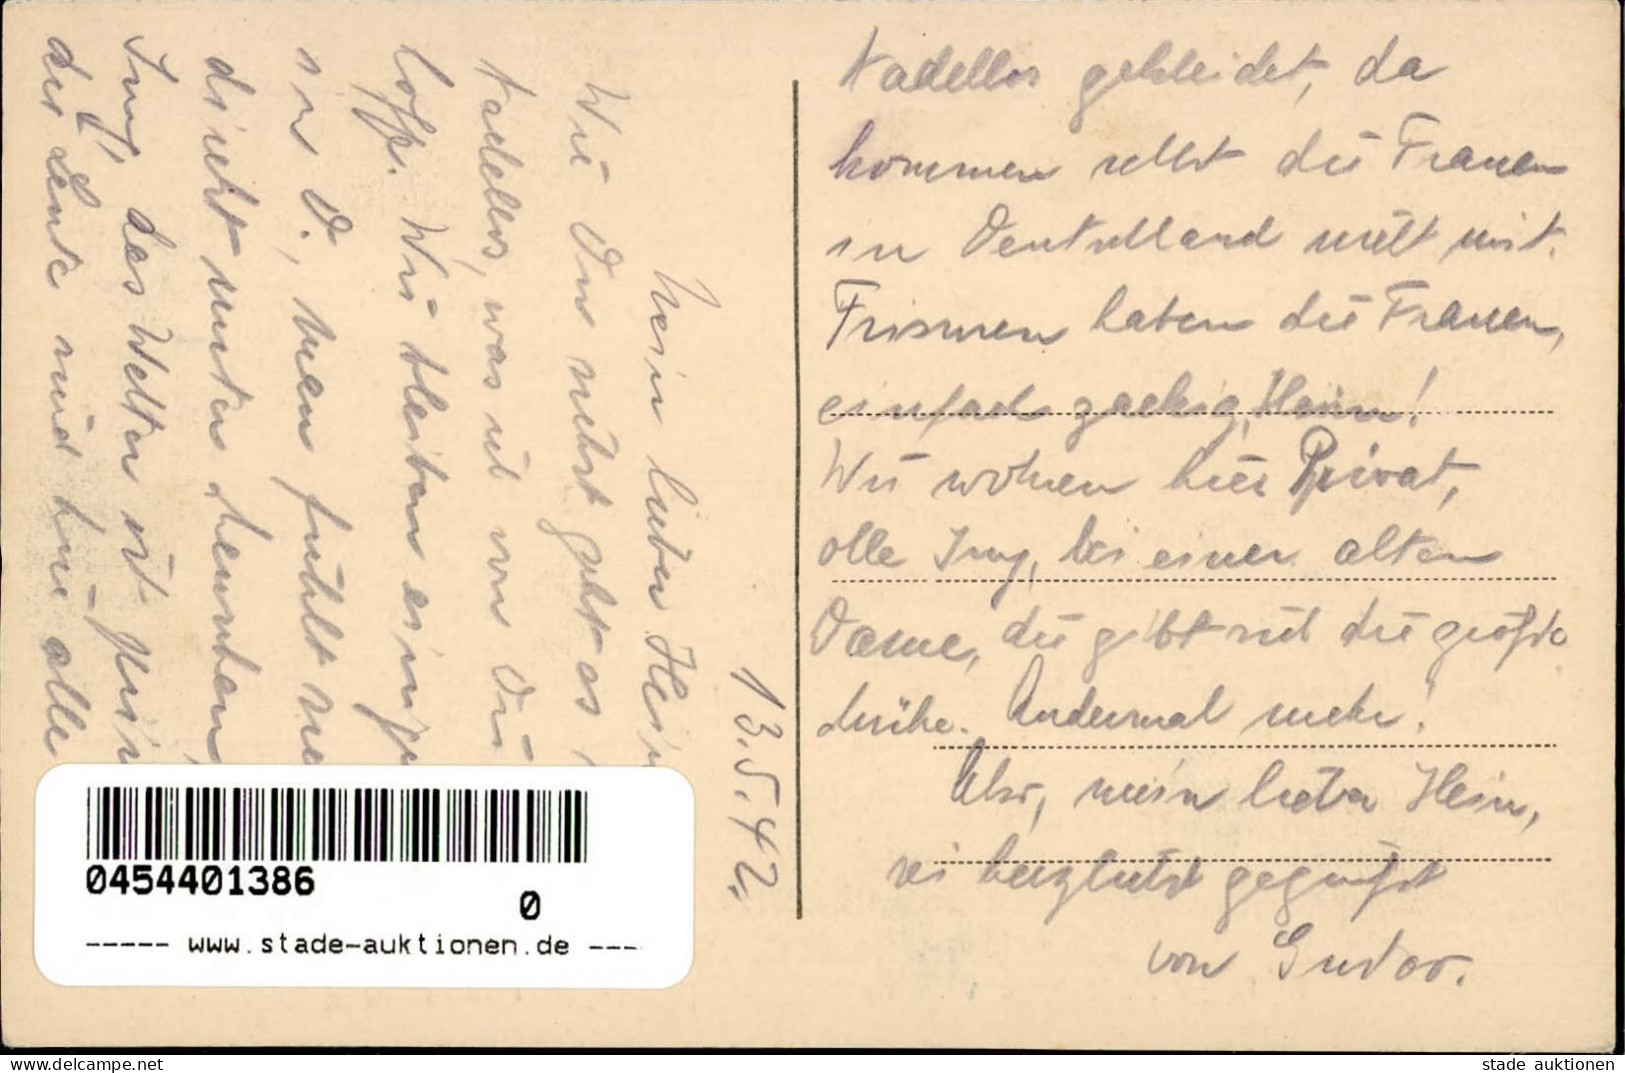 13.5.42.
Mein lieber Hein
Wie Du siehst geht es
tadellos, was ich von Dir
hoffe. Wir bleiben einge
in D., man fühlt
direkt unter Menschen,
Jung, das Wetter ist prim
die Leute sind hier alle
tadellos gekleidet, da
kommen selbst die Frauen
in Deutschland nicht mit.
Frisuren haben die Frauen,
einfach zackig, Hein!
Wir wohnen hier Privat,
olle Jung, bei einer alten
Dame, die gibt sich die größte
Mühe. Andermal mehr!
Also, mein lieber Hein,
sei herzlichst gegrüßt
von
0454401386
0
----- www.stade-auktionen.de ---
delcampe.net
stade auktionen